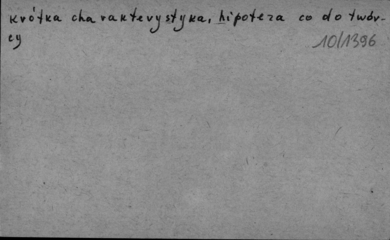 krótka charakterystyka, hipoteza co do twór-
cy
10/1396